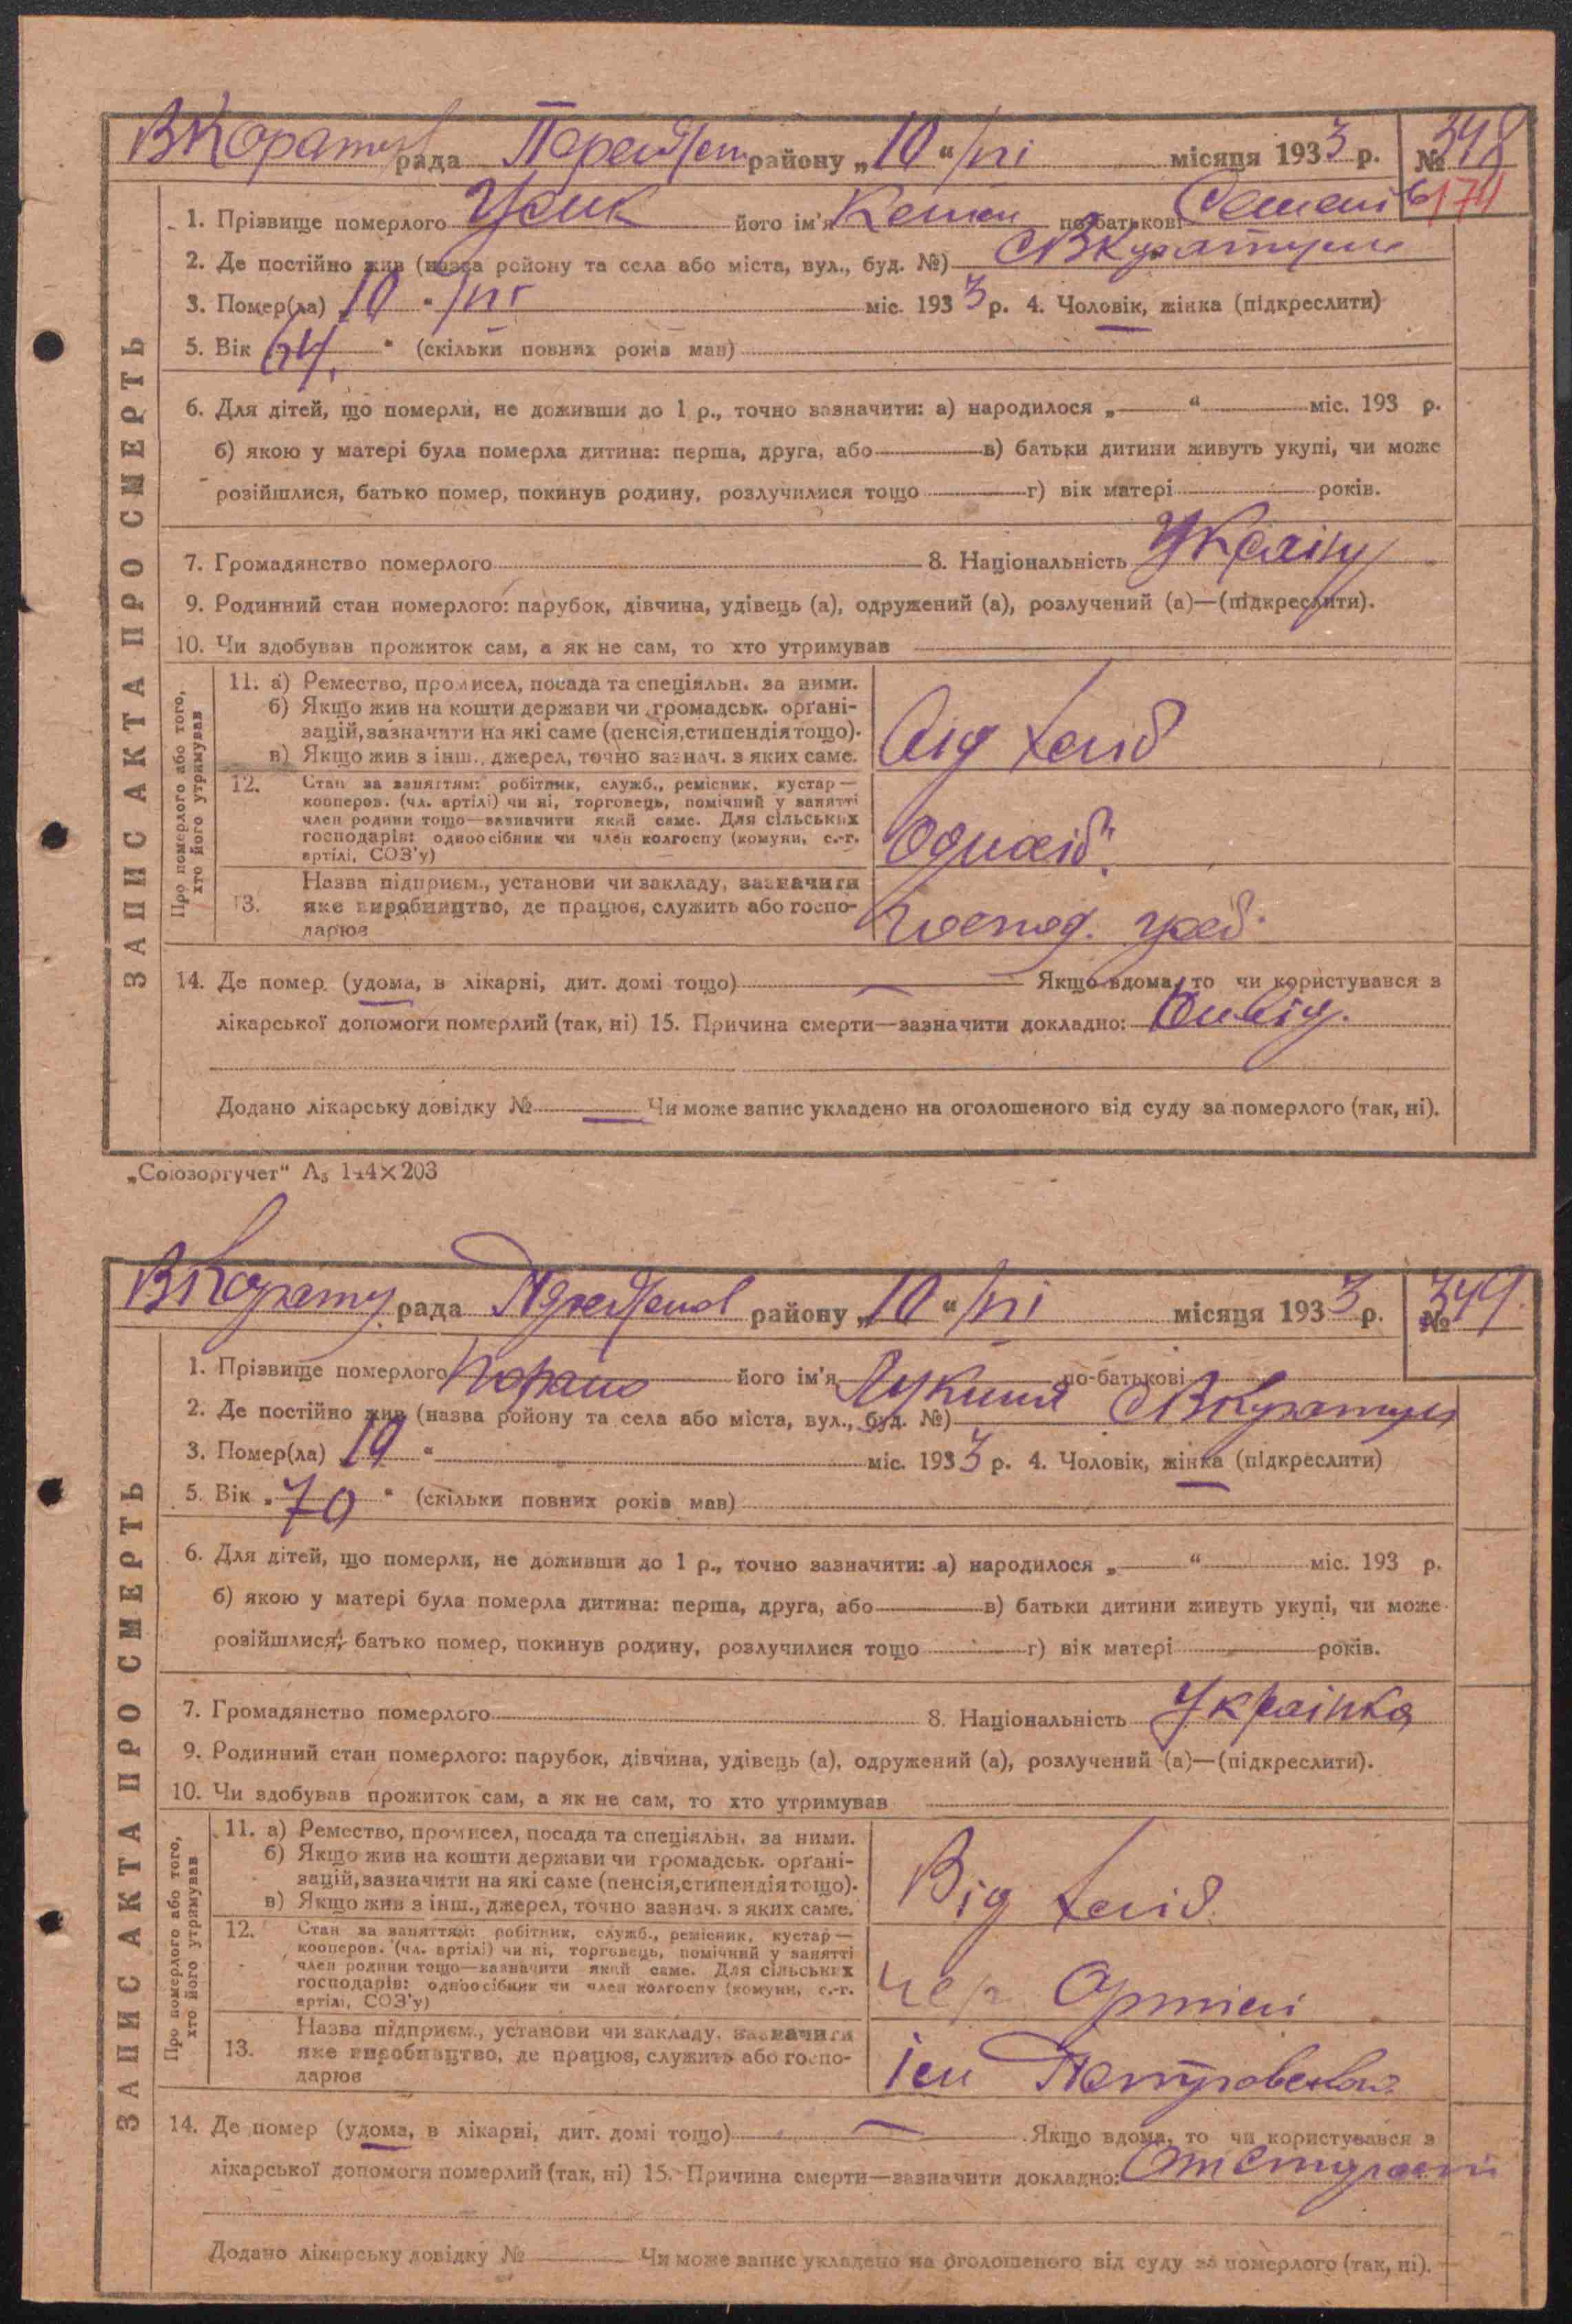 ЗАПИС АКТА ПРО СМЕРТЬ
рада району „10“ місяця 1933 р. № 348
174
1. Прізвище померлого Усик його ім'я по батькові
2. Де постійно жив (назва району та села або міста, вул., буд. №)
3. Помер(ла) „10“ міс. 1933 р. 4. Чоловік, жінка (підкреслити)
5. Вік „64“ (скільки повних років мав)
6. Для дітей, що померли, не доживши до 1 р., точно зазначити: а) народилося „ “ міс. 193 р.
б) якою у матері була померла дитина: перша, друга, або в) батьки дитини живуть укупі, чи може
розійшлися, батько помер, покинув родину, розлучилися тощо г) вік матері років.
7. Громадянство померлого 8. Національність
9. Родинний стан померлого: парубок, дівчина, удівець (а), одружений (а), розлучений (а)—(підкреслити).
10. Чи здобував прожиток сам, а як не сам, то хто утримував
Про померлого або того, хто його утримував
11. а) Ремество, промисел, посада та спеціяльн. за ними.
б) Якщо жив на кошти держави чи громадськ. орґані-
зацій, зазначити на які саме (пенсія, стипендія тощо).
в) Якщо жив з інш., джерел, точно зазнач. з яких саме.
Від хліб
12. Стан за заняттям: робітник, служб., ремісник, кустар—
кооперов. (чл. артілі) чи ні, торговець, помічний у занятті
член родини тощо—зазначити який саме. Для сільських
господарів: одноосібник чи член колгоспу (комуни, с.-г.
артілі, СОЗ'у)
Одноосіб.
13. Назва підприєм., установи чи закладу, зазначити
яке виробництво, де працює, служить або госпо-
дарює
14. Де помер (удома, в лікарні, дит. домі тощо) — Якщо вдома, то чи користувався з
лікарської допомоги померлий (так, ні) 15. Причина смерти—зазначити докладно:
Додано лікарську довідку № — Чи може запис укладено на оголошеного від суду за померлого (так, ні).
„Союзоргучет“ А₅ 144×203
ЗАПИС АКТА ПРО СМЕРТЬ
рада району „10“ місяця 1933 р. № 349
1. Прізвище померлого його ім'я по-батькові
2. Де постійно жив (назва району та села або міста, вул., буд. №)
3. Помер(ла) „10“ міс. 1933 р. 4. Чоловік, жінка (підкреслити)
5. Вік „70“ (скільки повних років мав)
6. Для дітей, що померли, не доживши до 1 р., точно зазначити: а) народилося „ “ міс. 193 р.
б) якою у матері була померла дитина: перша, друга, або в) батьки дитини живуть укупі, чи може
розійшлися, батько помер, покинув родину, розлучилися тощо г) вік матері років.
7. Громадянство померлого 8. Національність Українка
9. Родинний стан померлого: парубок, дівчина, удівець (а), одружений (а), розлучений (а)—(підкреслити).
10. Чи здобував прожиток сам, а як не сам, то хто утримував
Про померлого або того, хто його утримував
11. а) Ремество, промисел, посада та спеціяльн. за ними.
б) Якщо жив на кошти держави чи громадськ. орґані-
зацій, зазначити на які саме (пенсія, стипендія тощо).
в) Якщо жив з інш., джерел, точно зазнач. з яких саме.
Від хліб.
12. Стан за заняттям: робітник, служб., ремісник, кустар—
кооперов. (чл. артілі) чи ні, торговець, помічний у занятті
член родини тощо—зазначити який саме. Для сільських
господарів: одноосібник чи член колгоспу (комуни, с.-г.
артілі, СОЗ'у)
Артілі
13. Назва підприєм., установи чи закладу, зазначити
яке виробництво, де працює, служить або госпо-
дарює
Ім Петровского
14. Де помер (удома, в лікарні, дит. домі тощо) — Якщо вдома, то чи користувався з
лікарської допомоги померлий (так, ні) 15. Причина смерти—зазначити докладно: От старости
Додано лікарську довідку № Чи може запис укладено на оголошеного від суду за померлого (так, ні).